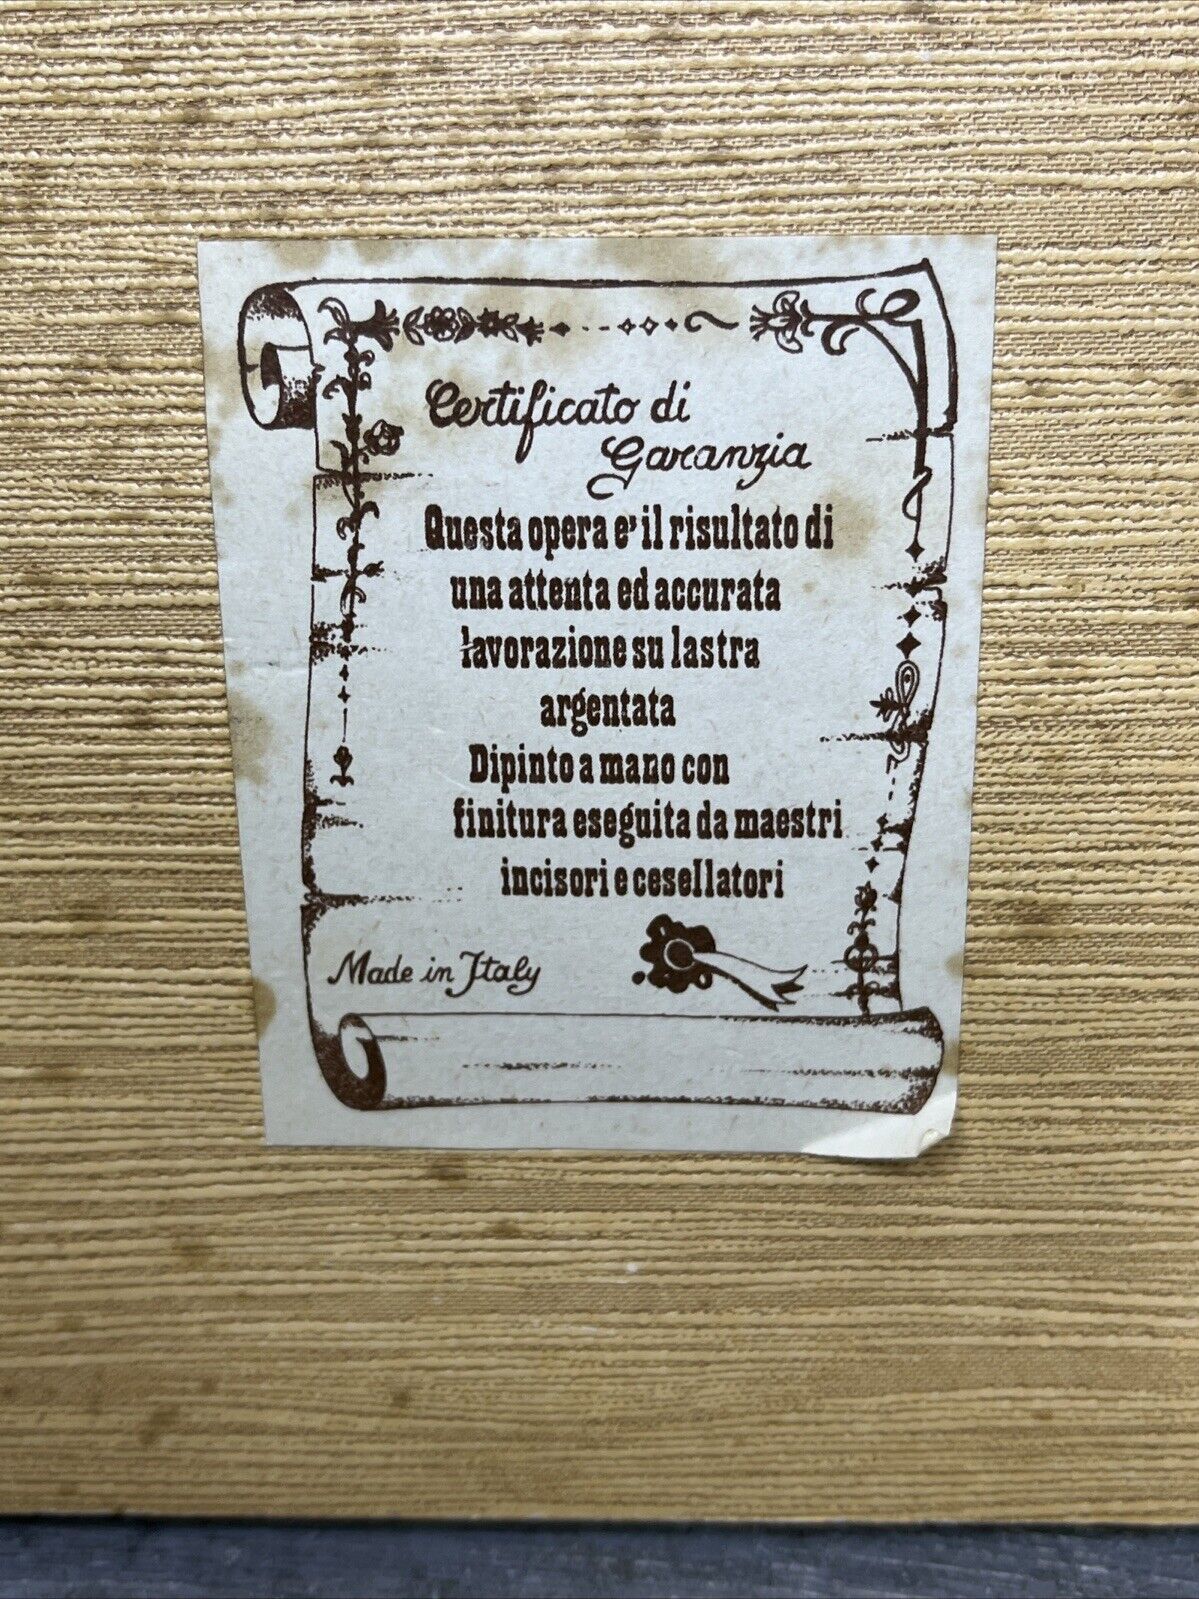 Certificato di
Garanzia
Questa opera e' il risultato di
una attenta ed accurata
lavorazione su lastra
argentata
Dipinto a mano con
finitura eseguita da maestri
incisori e cesellatori
Made in Italy